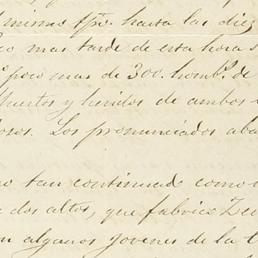 mismo tpo. hasta las diez
mas tarde de esta hora s
poco mas de 300. homb.s de
Muertos y heridos de ambos
osos. Los pronunciados aba
tan continuad como
dos altos, que fabricó
algunos jovenes de la